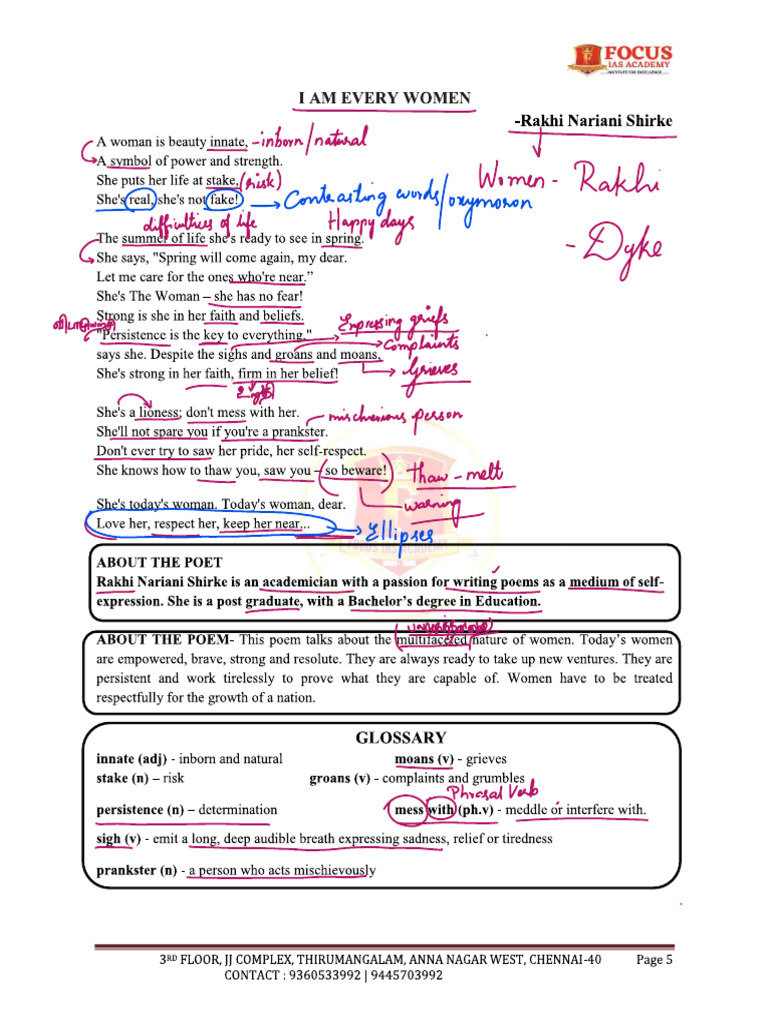 FOCUS
IAS ACADEMY
INSTITUTE FOR EXCELLENCE
I AM EVERY WOMEN
-Rakhi Nariani Shirke
A woman is beauty innate, - inborn/natural
A symbol of power and strength.
Women - Rakhi
She puts her life at stake, (risk)
She's real, she's not fake! → Contrasting words/oxymoron
- Dyke
difficulties of life Happy days
The summer of life she's ready to see in spring.
She says, "Spring will come again, my dear.
Let me care for the ones who're near."
She's The Woman – she has no fear!
Strong is she in her faith and beliefs.
"Persistence is the key to everything," Expressing griefs
says she. Despite the sighs and groans and moans, Complaints
She's strong in her faith, firm in her belief! Grieves
She's a lioness; don't mess with her.
She'll not spare you if you're a prankster. mischevious person
Don't ever try to saw her pride, her self-respect.
She knows how to thaw you, saw you – so beware! thaw - melt
warning
She's today's woman. Today's woman, dear.
Love her, respect her, keep her near... → Ellipses
ABOUT THE POET
Rakhi Nariani Shirke is an academician with a passion for writing poems as a medium of self-
expression. She is a post graduate, with a Bachelor's degree in Education.
ABOUT THE POEM- This poem talks about the multifaceted nature of women. Today's women
are empowered, brave, strong and resolute. They are always ready to take up new ventures. They are
persistent and work tirelessly to prove what they are capable of. Women have to be treated
respectfully for the growth of a nation.
GLOSSARY
innate (adj) - inborn and natural moans (v) - grieves
stake (n) – risk groans (v) - complaints and grumbles
Phrasal Verb
persistence (n) – determination mess with (ph.v) - meddle or interfere with.
sigh (v) - emit a long, deep audible breath expressing sadness, relief or tiredness
prankster (n) - a person who acts mischievously
3RD FLOOR, JJ COMPLEX, THIRUMANGALAM, ANNA NAGAR WEST, CHENNAI-40 Page 5
CONTACT : 9360533992 | 9445703992